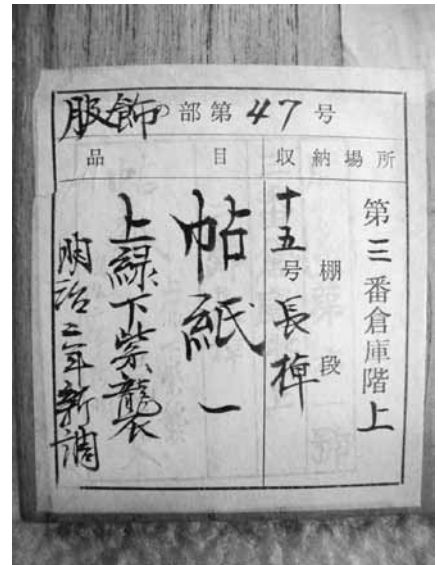 服飾の部第47号
品目 収納場所
第三番倉庫階上
棚段
十五号長棹
帖紙一
上緑下紫襲
明治二年新調